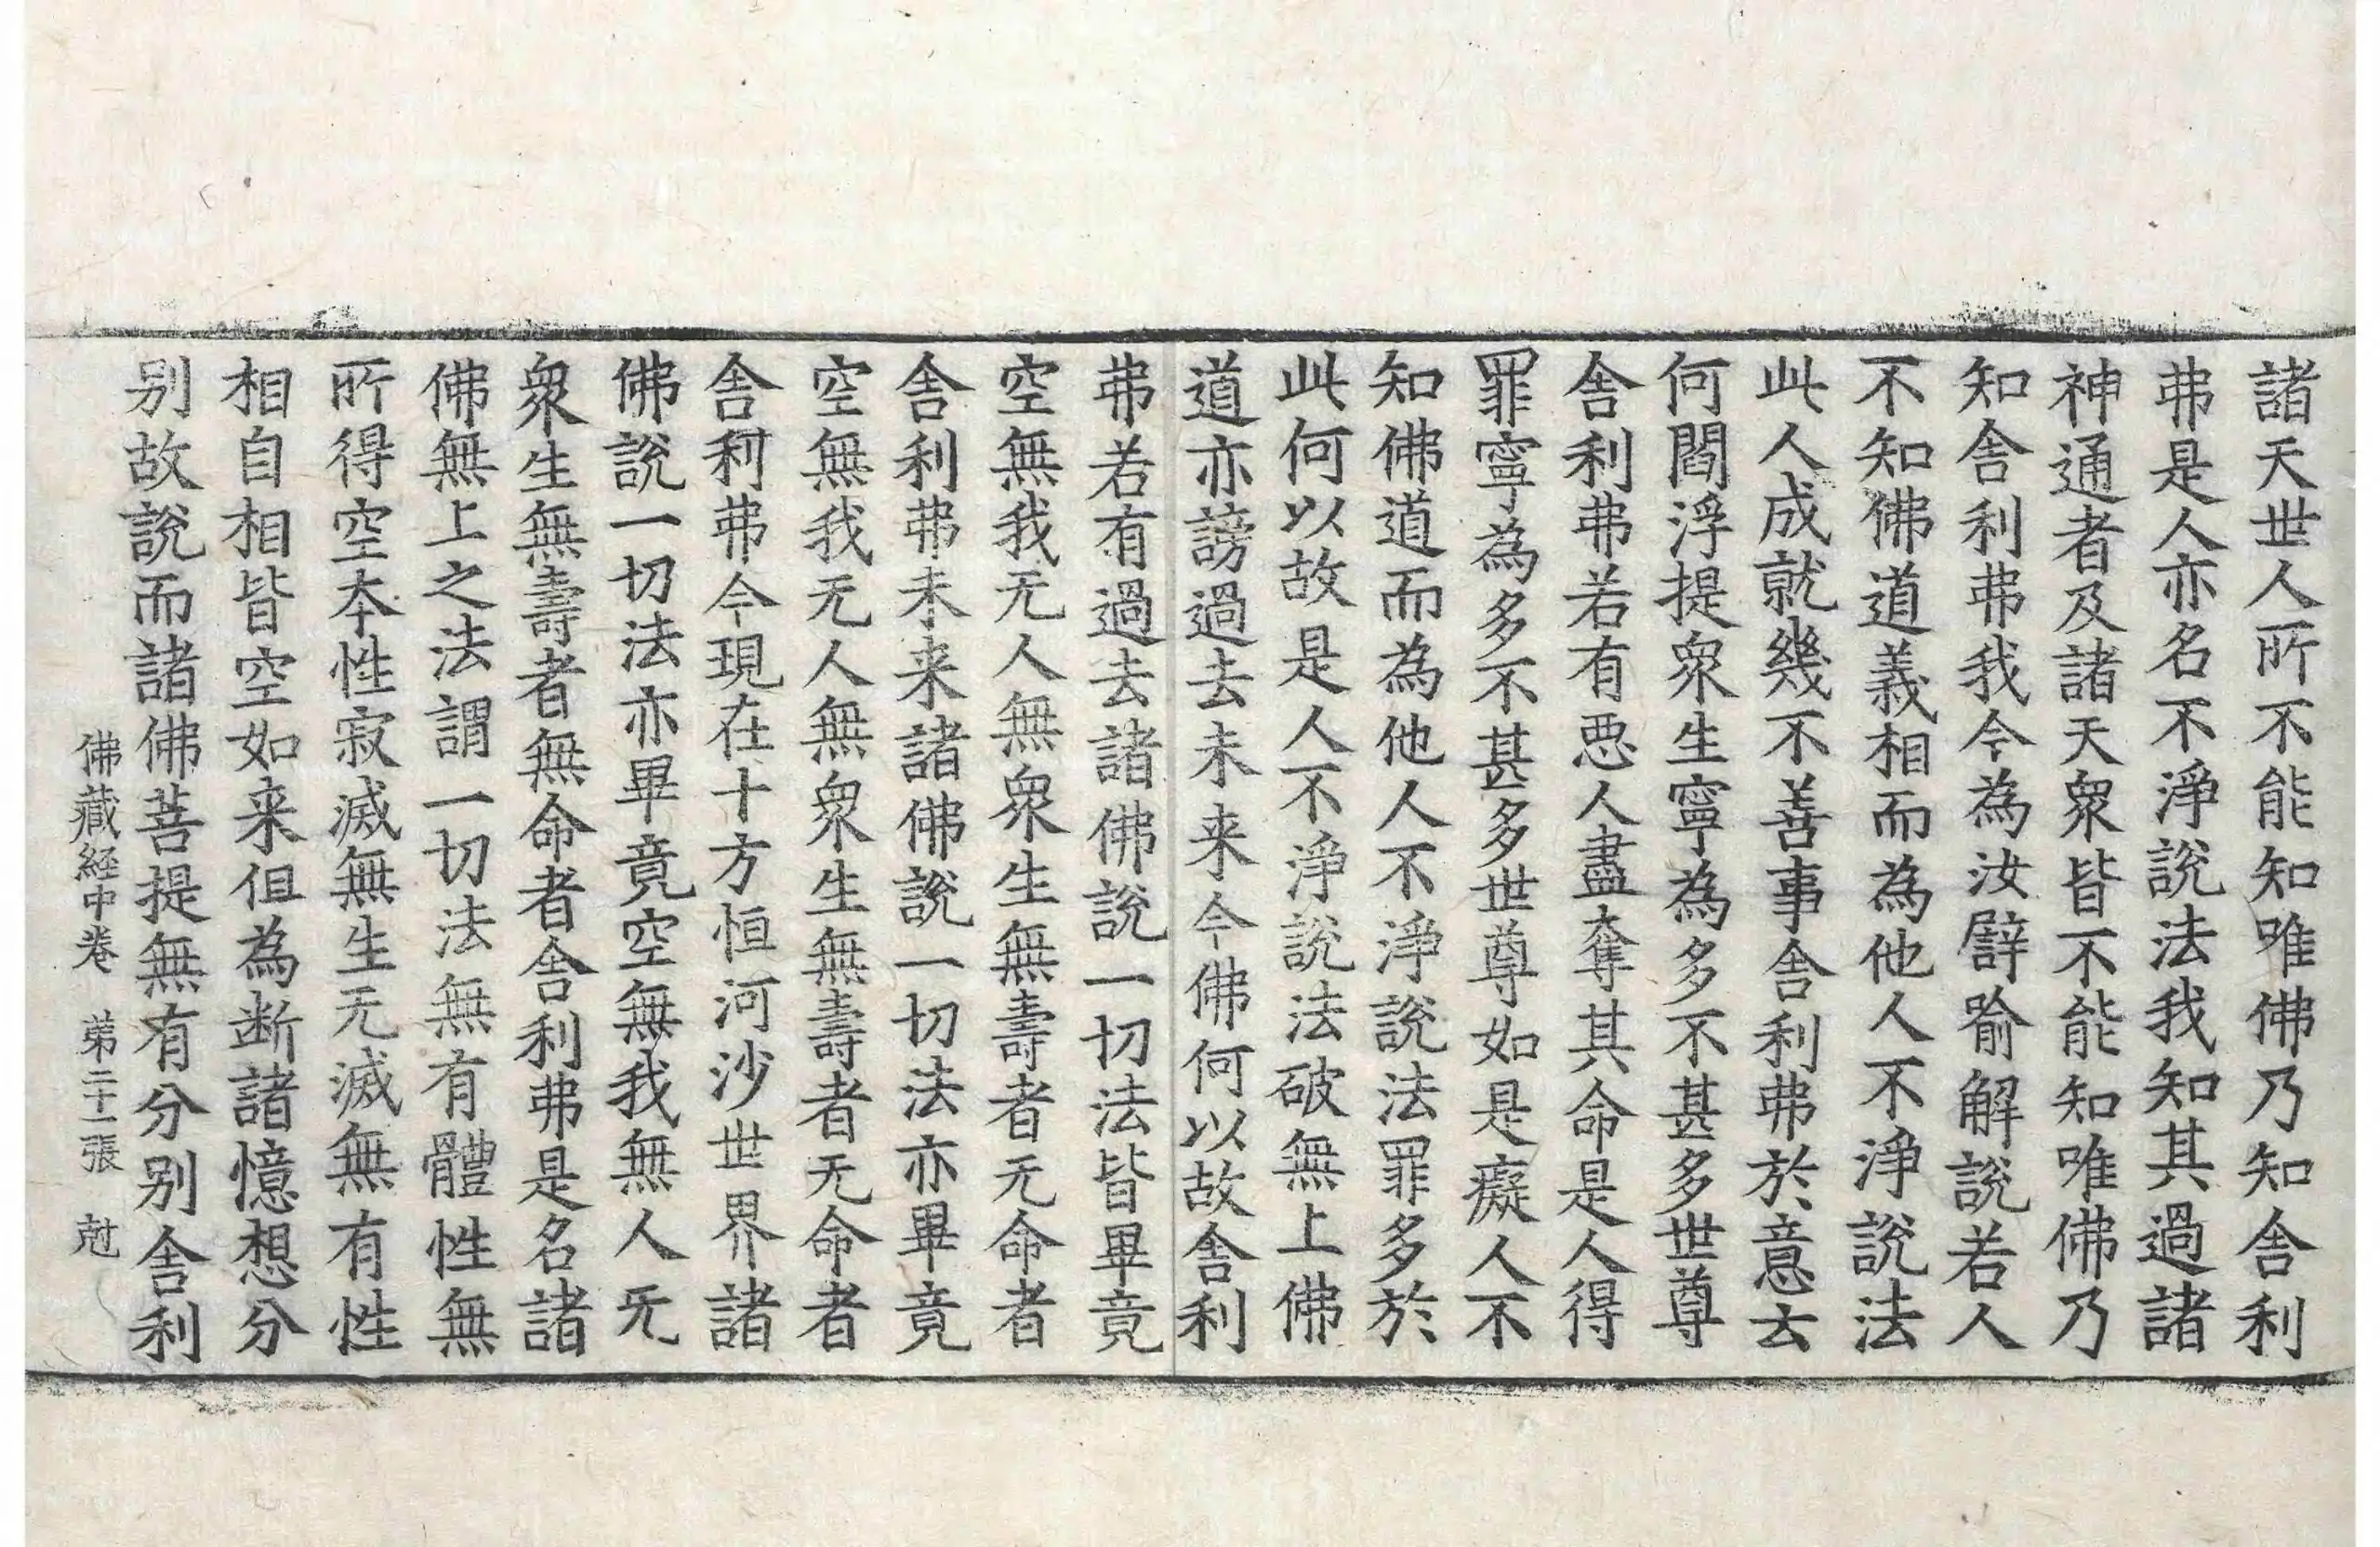 諸天世人所不能知唯佛乃知舍利
弗是人亦名不淨說法我知其過諸
神通者及諸天衆皆不能知唯佛乃
知舍利弗我今為汝譬喻解說若人
不知佛道義相而為他人不淨說法
此人成就幾不善事舍利弗於意云
何閻浮提衆生寧為多不甚多世尊
舍利弗若有惡人盡奪其命是人得
罪寧為多不甚多世尊如是癡人不
知佛道而為他人不淨說法罪多於
此何以故是人不淨說法破無上佛
道亦謗過去未来今佛何以故舍利
弗若有過去諸佛說一切法皆畢竟
空無我无人無衆生無壽者无命者
舍利弗未来諸佛說一切法亦畢竟
空無我无人無衆生無壽者无命者
舍利弗今現在十方恒河沙世界諸
佛說一切法亦畢竟空無我無人无
衆生無壽者無命者舍利弗是名諸
佛無上之法謂一切法無有體性無
所得空本性寂滅無生无滅無有性
相自相皆空如来但為断諸憶想分
别故說而諸佛菩提無有分别舍利
佛藏經中卷　苐二十一張　尅